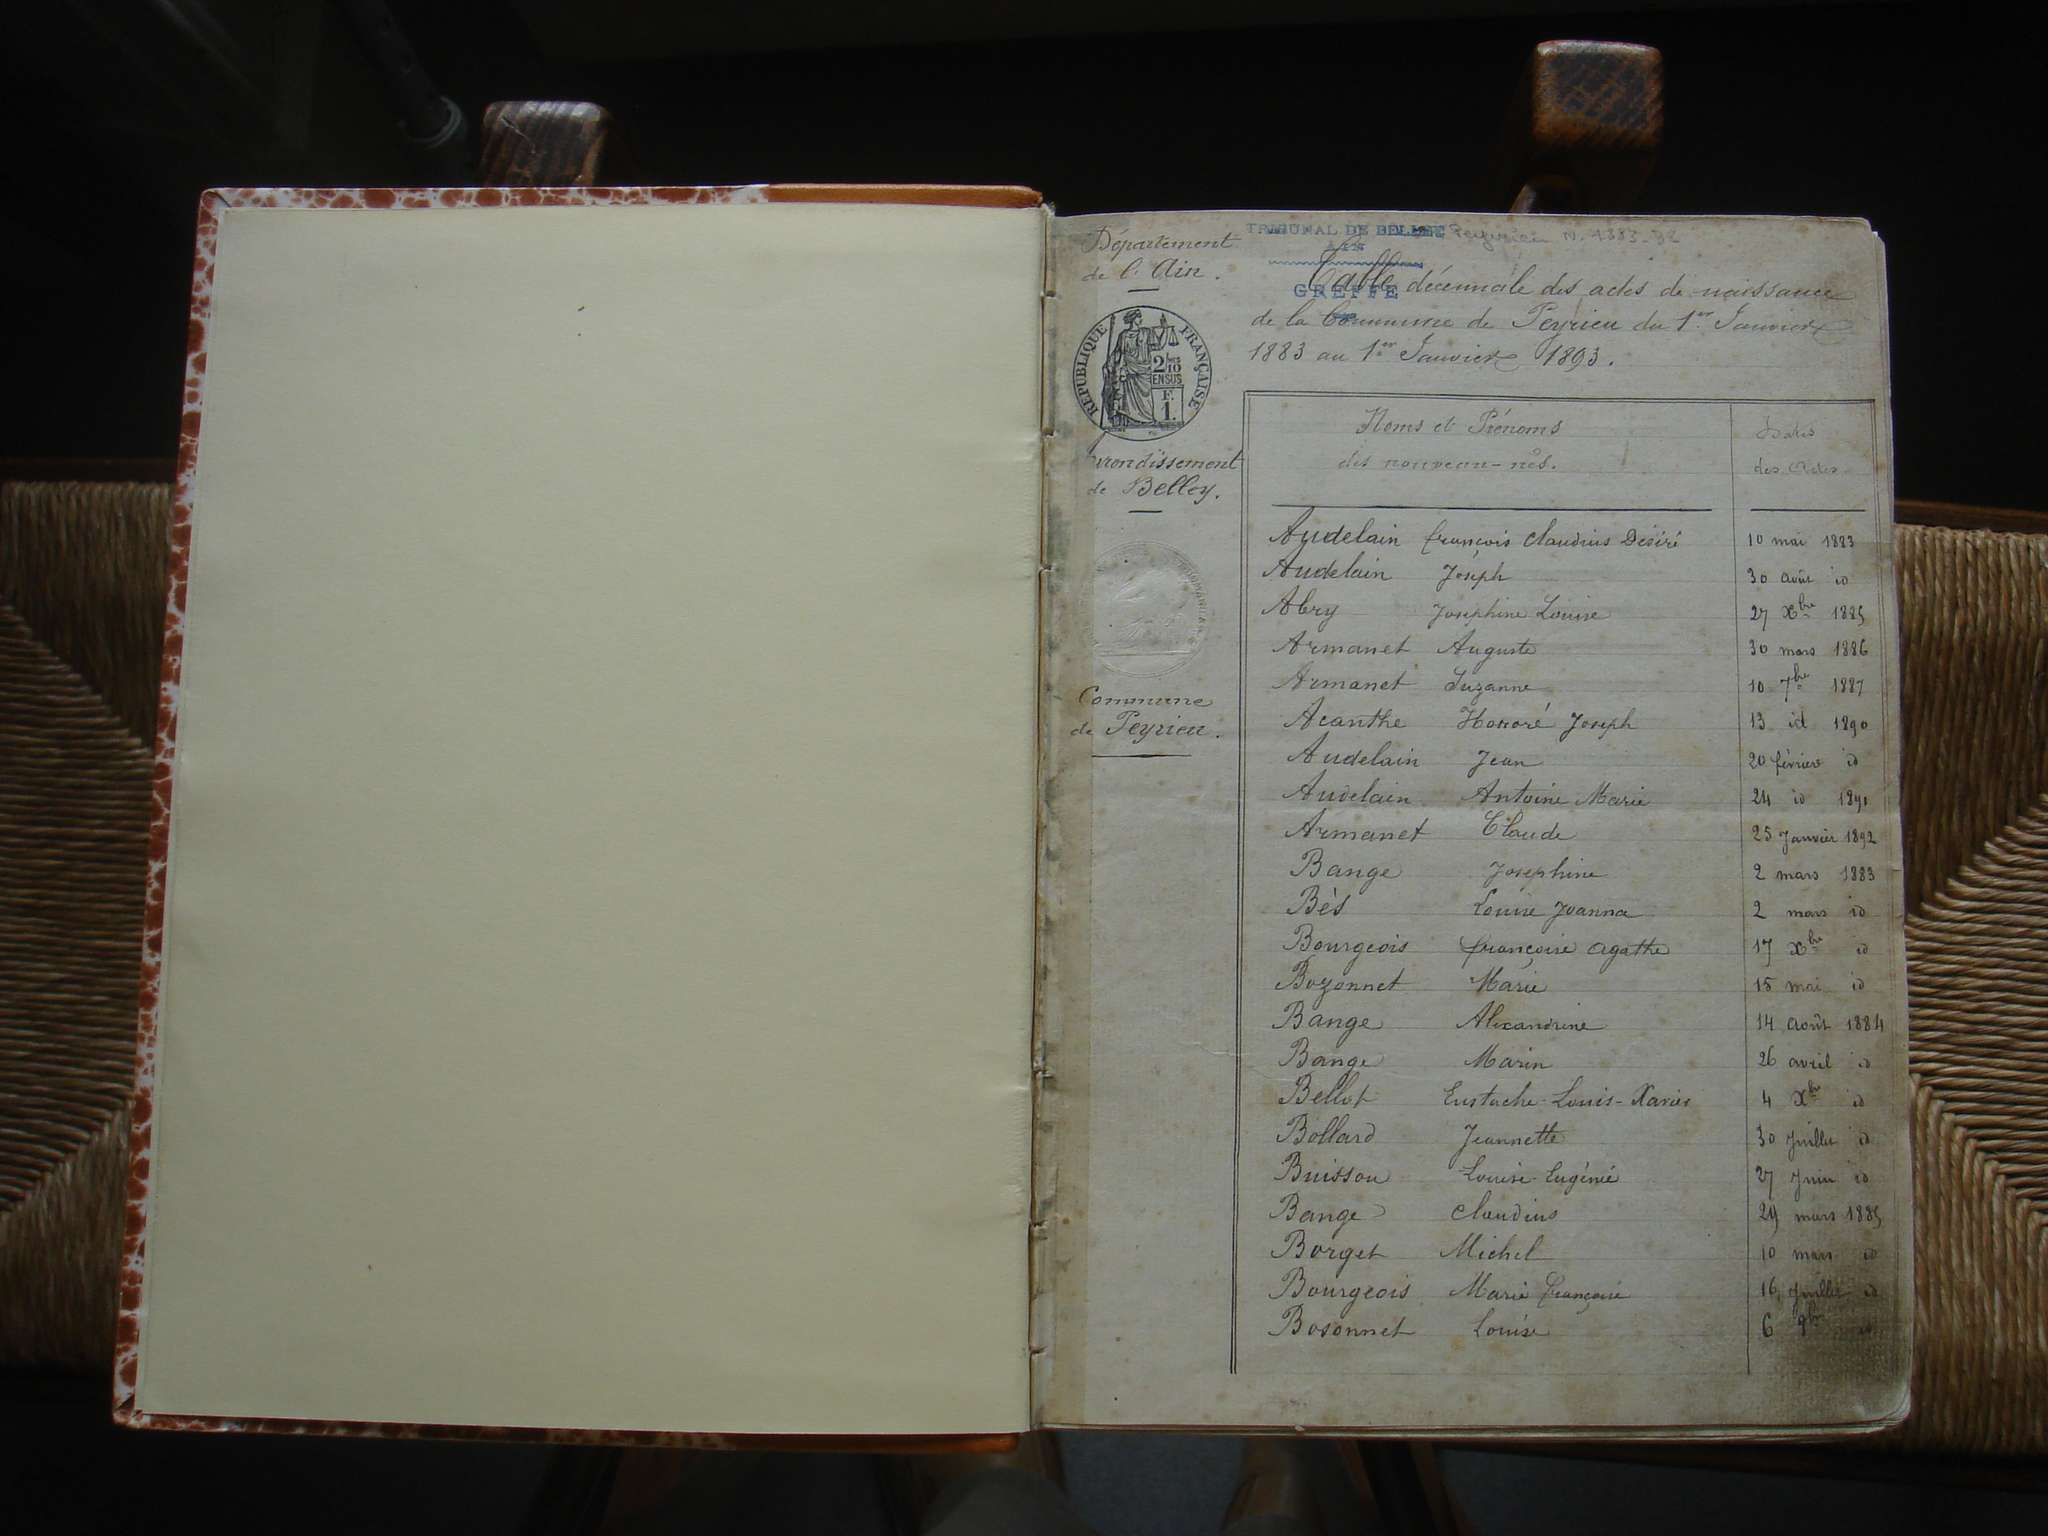 Département
de l'Ain.
REPUBLIQUE FRANÇAISE
2/10
EN SUS
F.
1.
Arrondissement
de Belley.
Commune
de Peyrieu.
TRIBUNAL DE BELLEY
AIN
GREFFE
Peyrieu N. 1883-92
Table décennale des actes de naissance
de la Commune de Peyrieu du 1er Janvier
1883 au 1er Janvier 1893.
Noms et Prénoms
des nouveau-nés.
Dates
des Actes
Audelain François Claudius Désiré 10 mai 1883
Audelain Joseph 30 août id
Abry Joséphine Louise 27 Xbre 1885
Armanet Auguste 30 mars 1886
Armanet Suzanne 10 7bre 1887
Acanthe Honoré Joseph 13 id 1890
Audelain Jean 20 février id
Audelain Antoine Marie 24 id 1891
Armanet Claude 25 Janvier 1892
Bange Joséphine 2 mars 1883
Bès Louise Joanna 2 mars id
Bourgeois Françoise Agathe 17 Xbre id
Bozonnet Marie 15 mai id
Bange Alexandrine 14 août 1884
Bange Marin 26 avril id
Bellot Eustache-Louis-Xavier 4 Xbre id
Bollard Jeannette 30 Juillet id
Buisson Louise-Eugénie 27 Juin id
Bange Claudius 29 mars 1885
Borget Michel 10 mars id
Bourgeois Marie Françoise 16 Juillet id
Bosonnet Louise 6 9bre id